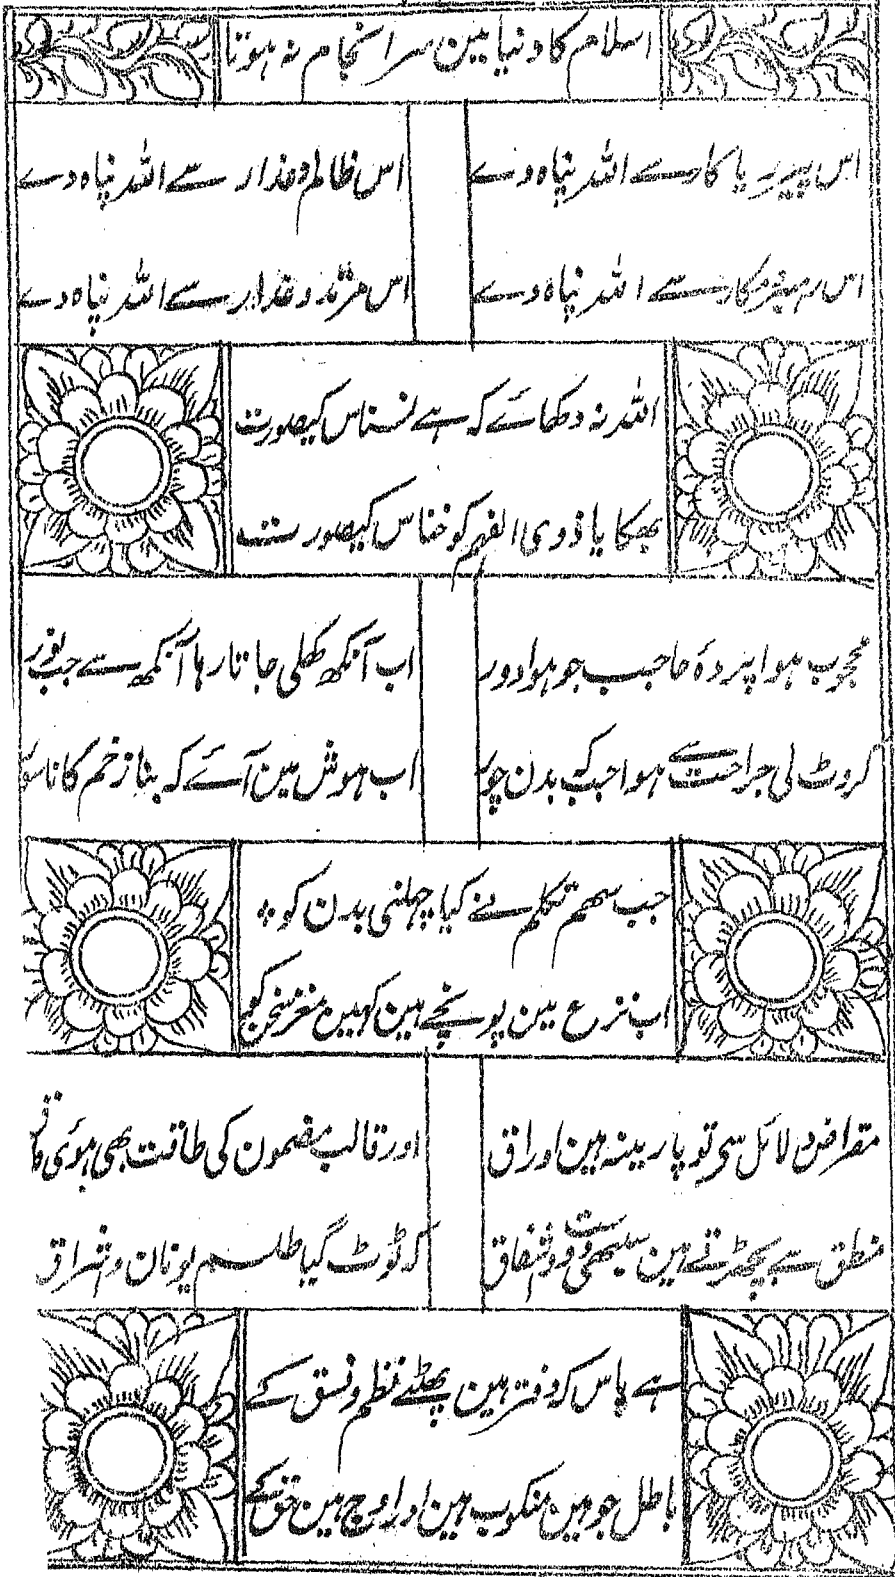 اسلام کا دنیا مین سر انجام نہ ہوتا
اس پیر ریاکار سے اللہ پناہ دے
اس ظالم و غدار سے اللہ پناہ دے
اس رہبر مکار سے اللہ پناہ دے
اس مرتد و غدار سے اللہ پناہ دے
اللہ نہ دکھائے کہ ہے نسناس کیصورت
بھکایا ذوی الفہم کو خناس کیصورت
محجوب ہوا پردۂ حاجب جو ہوا دور
اب آنکھ کھلی جاتا رہا آنکھ سے جب نور
کروٹ لی جراحت سے ہوا جب کہ بدن چور
اب ہوش مین آئے کہ بنا زخم کا ناسور
جب سہم تکلم نے کیا چھلنی بدن کو
اب نزع مین پونچے ہین کہین مغز سخن کو
مقراض دلائل سے تو پارینہ ہین اوراق
اور قالب مضمون کی طاقت بھی ہوئی
منطق سے بچھڑتے ہین سبھی و اشفاق
کہ ٹوٹ گیا طلسم یونان و اشراق
ہے پاس کہ دفتر ہین پھٹے نظم و نسق کے
باطل جو ہین منکوب ہین اور اوج ہین حق کے